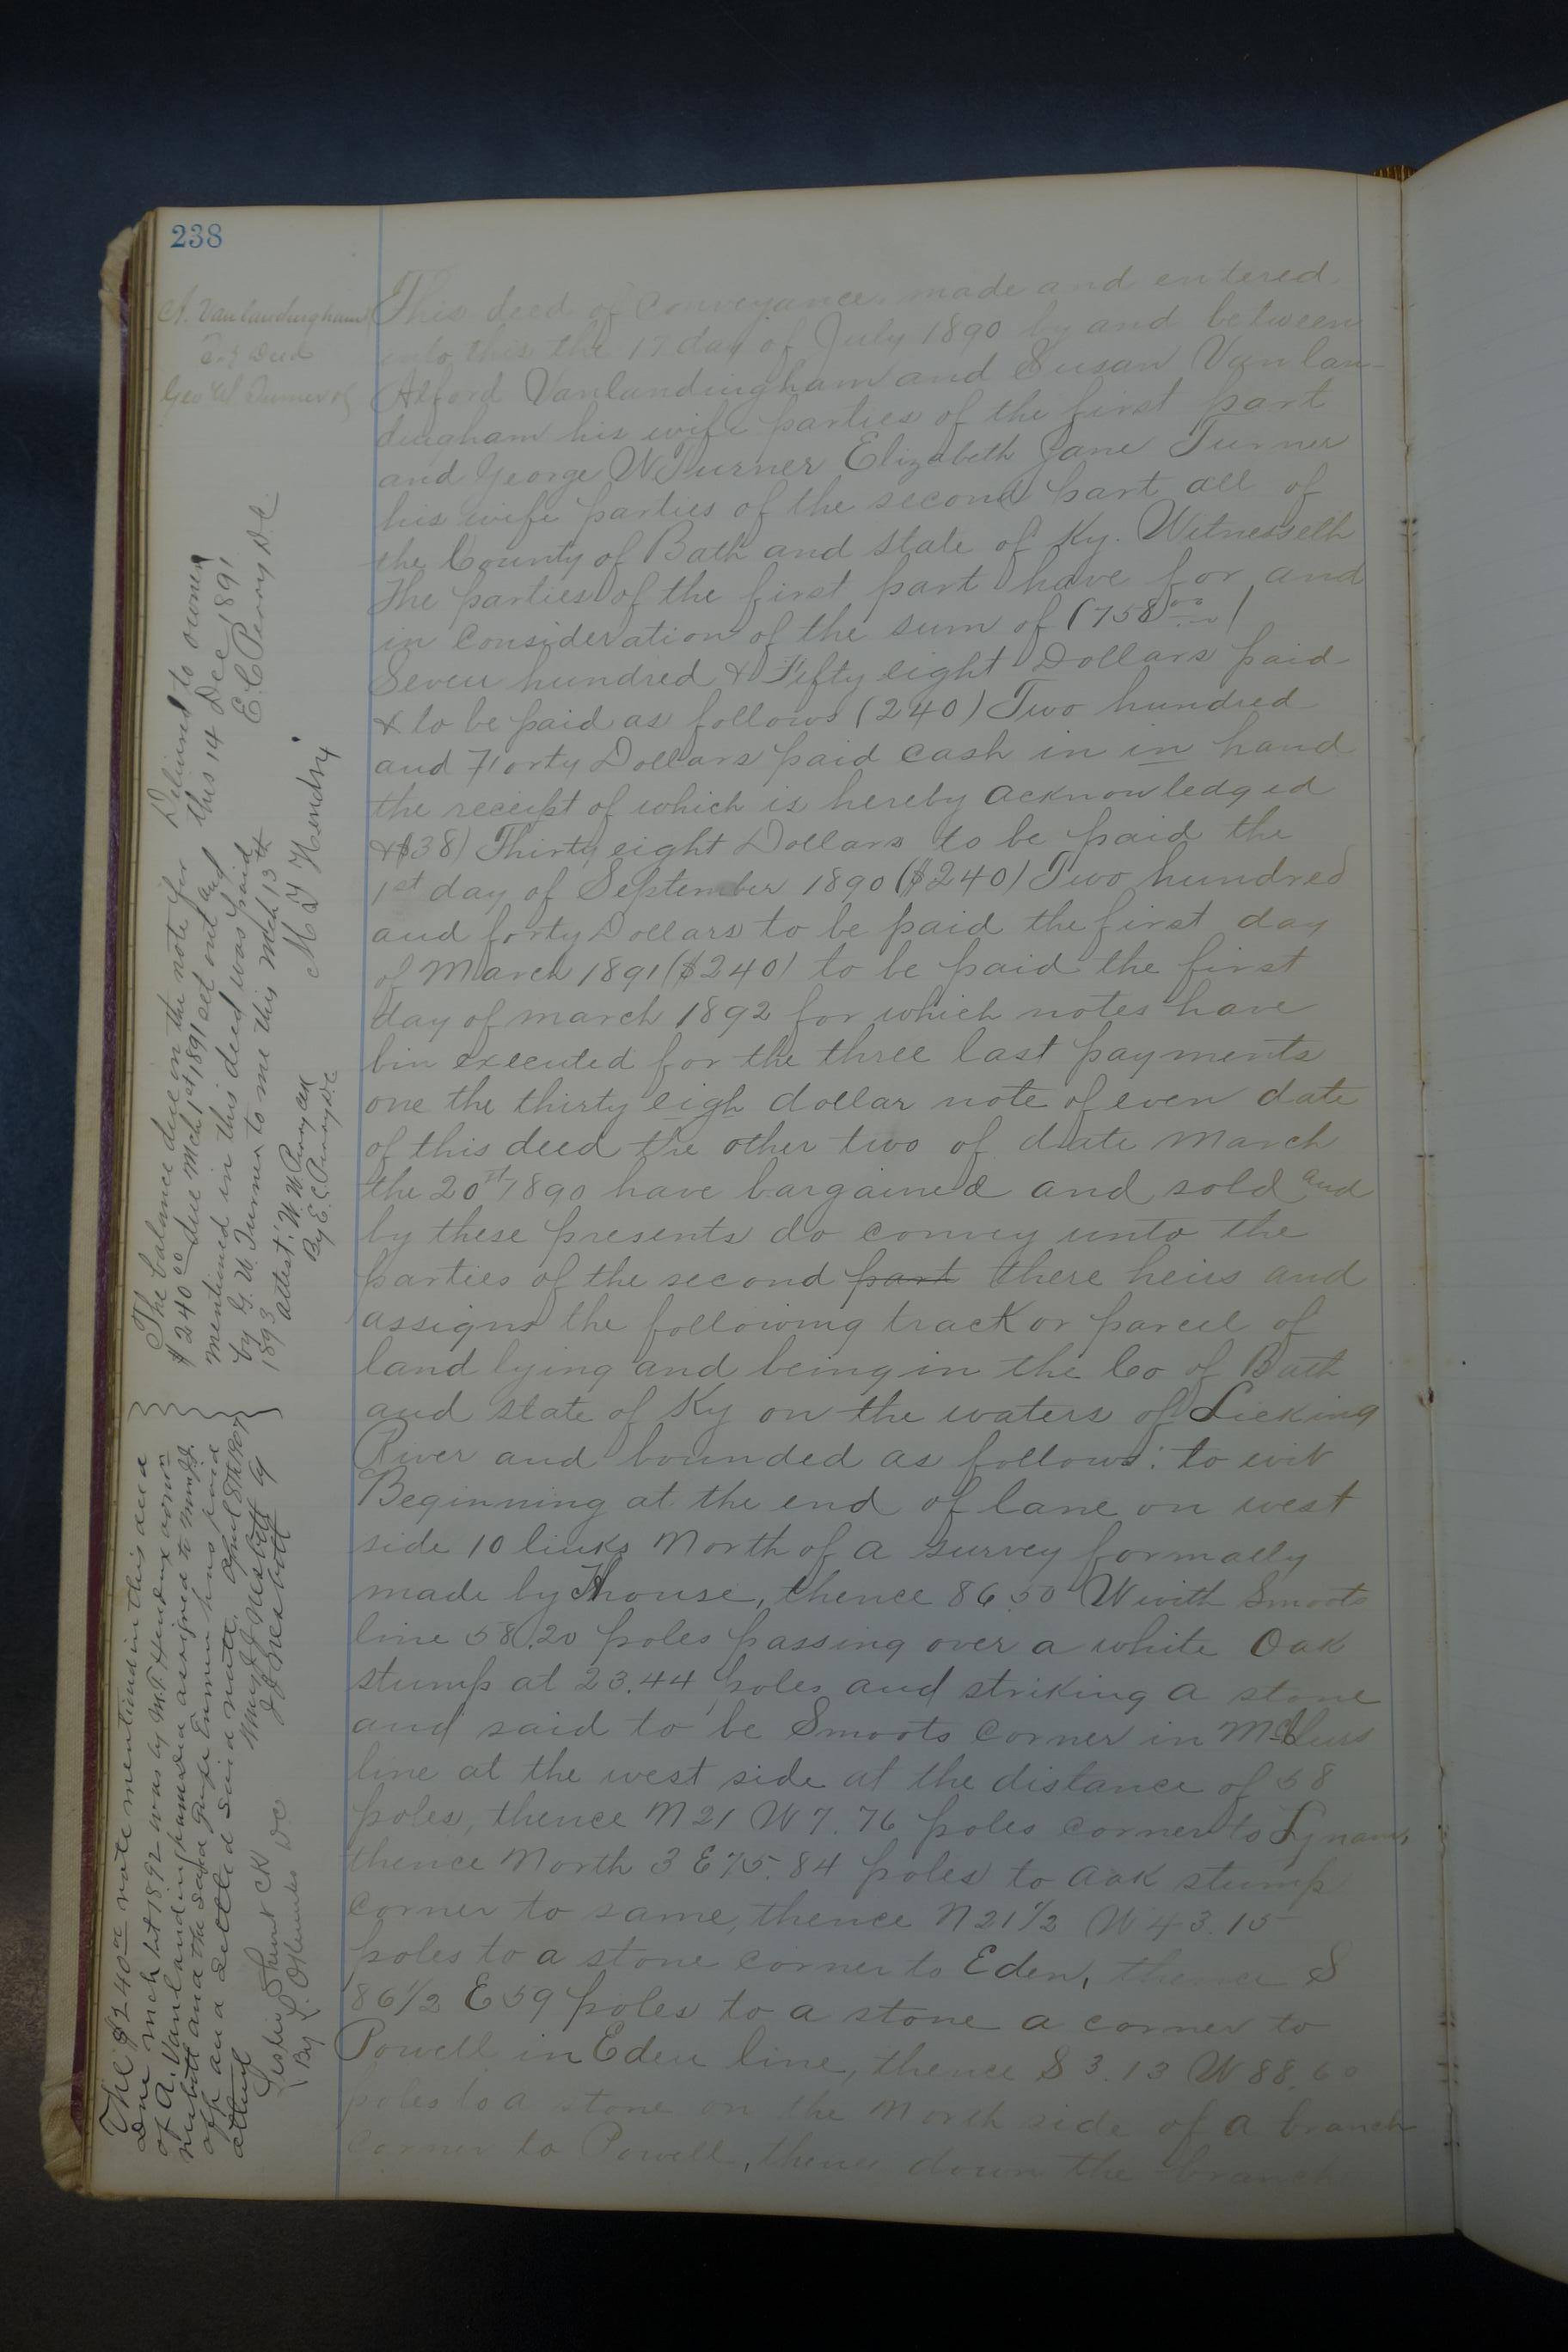 238
A. Vanlandingham
To Deed
Geo W Turner &c
This deed of Conveyance made and entered
into this the 17 day of July 1890 by and between
Alford Vanlandingham and Susan Vanlan-
dingham his wife parties of the first part
and George W Turner Elizabeth Jane Turner
his wife parties of the second part all of
the County of Bath and state of Ky. Witnesseth
The parties of the first part have for and
in consideration of the sum of (758 00)
Seven hundred & Fifty eight Dollars paid
& to be paid as follows (240) Two hundred
and Forty Dollars paid cash in in hand
the receipt of which is hereby acknowledged
&$38) Thirty eight Dollars to be paid the
1st day of September 1890 ($240) Two hundred
and forty Dollars to be paid the first day
of March 1891 ($240) to be paid the first
day of march 1892 for which notes have
bin executed for the three last payments
one the thirty eigh dollar note of even date
of this deed the other two of date March
the 20st 1890 have bargained and sold and
by these presents do convey unto the
parties of the second part there heirs and
assigns the following track or parcel of
land lying and being in the Co of Bath
and state of Ky on the waters of Licking
River and bounded as follows: to wit
Beginning at the end of lane on west
side 10 links North of a survey formally
made by House, thence 86.50 W with Smoots
line 58.20 poles passing over a white Oak
stump at 23.44 poles and striking a stone
and said to be Smoots corner in
line at the west side at the distance of 58
poles, thence N 21 W 7.76 poles corner to Lynam,
thence North 3 E 75.84 poles to aak stump
corner to same, thence N 21 1/2 W 43.15
poles to a stone corner to Eden, thence S
86 1/2 E 59 poles to a stone a corner to
Powell in Eden line, thence S 3.13 W 88.60
poles to a stone on the North side of a branch
corner to Powell, thence down the branch
Delivered to owner
this 14 Dec 1891
E C Perry D.C.
The balance due on the note for
$240 00 due Mch 1st 1891 set out and
mentioned in this deed was paid
by G. W. Turner to me this Mch 13th
1893 M T Hendrix
attest: W. W. Perry Clk
By E. C. Perry D.C.
The $240 00 note mentioned in this deed
Due Mch 1st 1892 was by M. T. Hendrix
of A. Vanlandingham assigned to
Nesbitt and the said Turner has paid
off and settled said note. April 8th 1897
attest
J J Nesbitt
Leslie Shrout Clk
By